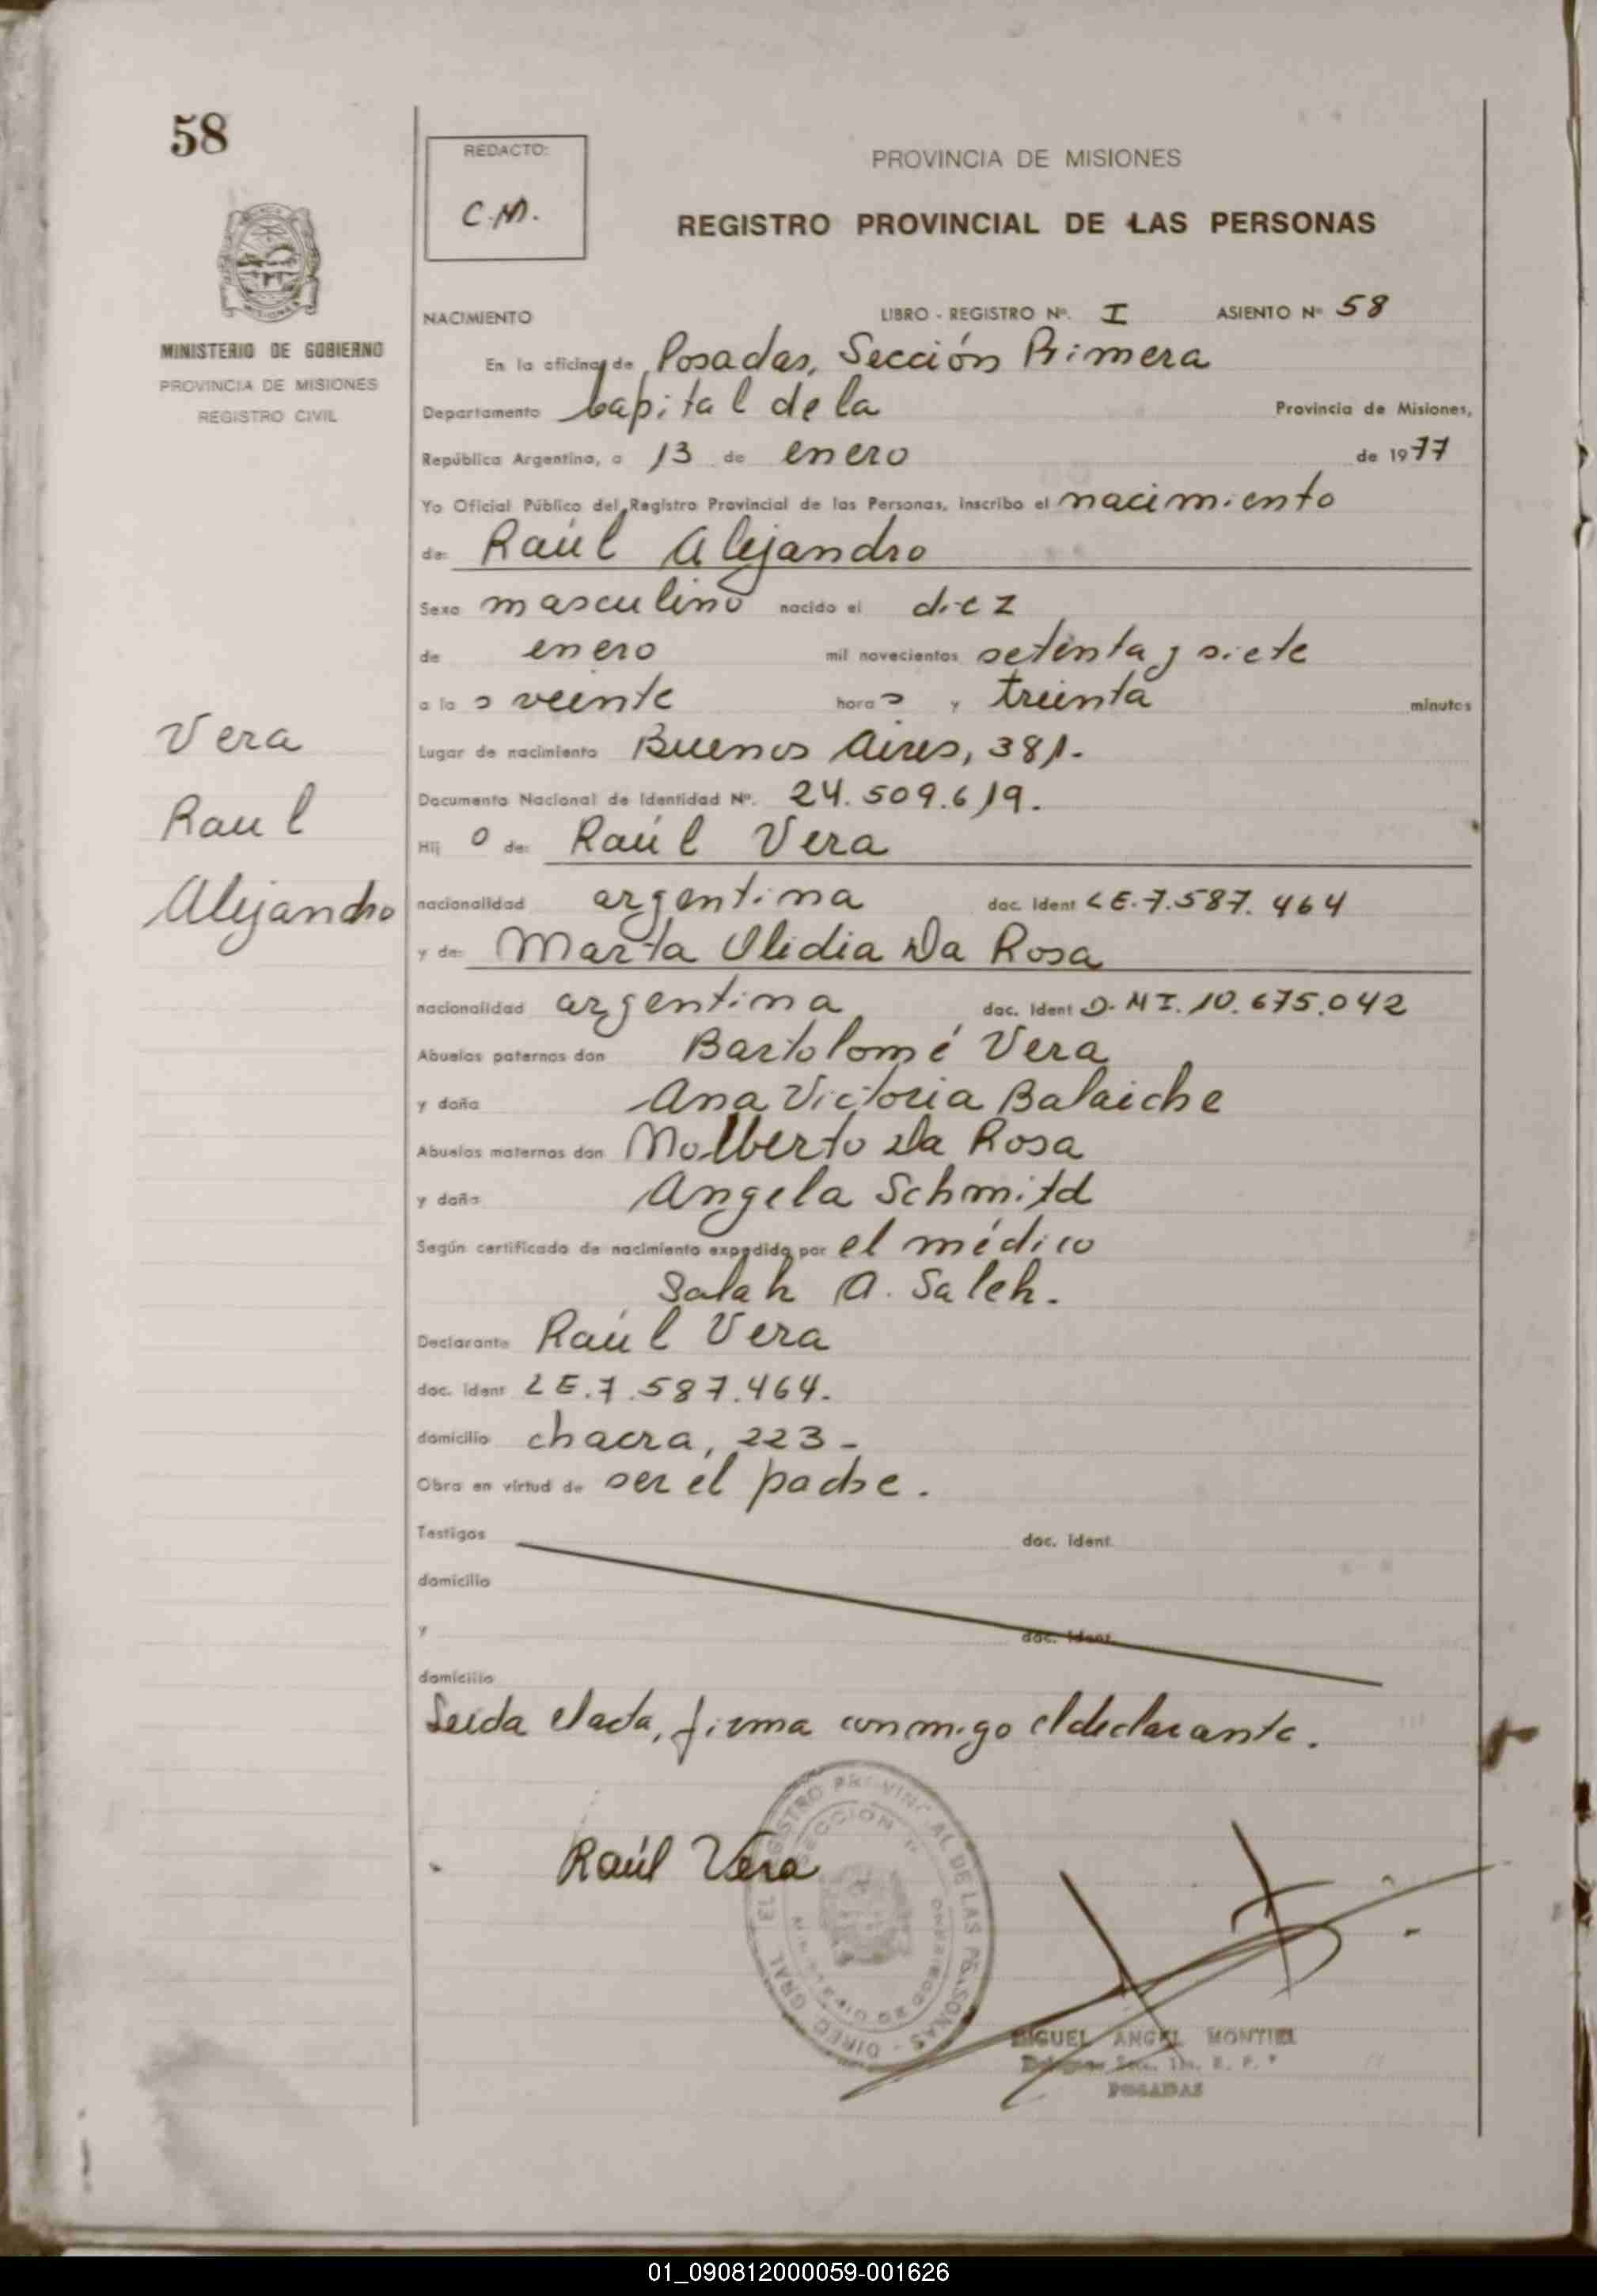 58
REDACTO:
C.M.
PROVINCIA DE MISIONES
REGISTRO PROVINCIAL DE LAS PERSONAS
MINISTERIO DE GOBIERNO
PROVINCIA DE MISIONES
REGISTRO CIVIL
NACIMIENTO LIBRO - REGISTRO Nº. I ASIENTO Nº 58
En la oficina de Posadas, Sección Primera
Departamento Capital de la Provincia de Misiones,
República Argentina, a 13 de enero de 1977
Yo Oficial Público del Registro Provincial de las Personas, inscribo el nacimiento
de: Raúl Alejandro
Sexo masculino nacido el diez
de enero mil novecientos setenta y siete
a la s veinte hora s y treinta minutos
Lugar de nacimiento Buenos Aires, 381.
Documento Nacional de Identidad Nº. 24.509.619.
Hij o de: Raúl Vera
nacionalidad argentina doc. ident LE.7.587.464
y de: Marta Olidia Da Rosa
nacionalidad argentina doc. ident D.NI. 10.675.042
Abuelos paternos don Bartolomé Vera
y doña Ana Victoria Balaiche
Abuelos maternos don Molberto Da Rosa
y doña Angela Schmitd
Según certificado de nacimiento expedido por el médico
Salah A. Saleh.
Declarante Raúl Vera
doc. ident LE.7.587.464.
domicilio chacra, 223-
Obra en virtud de ser el padre.
Testigos doc. ident.
domicilio
y doc. ident.
domicilio
Leida el acta, firma conmigo el declarante.
Vera
Raul
Alejandro
Raúl Vera
DIREC. GRAL. DEL REGISTRO PROVINCIAL DE LAS PERSONAS
SECCION 1ª
MINISTERIO DE GOBIERNO
MIGUEL ANGEL MONTIEL
POSADAS
01_090812000059-001626